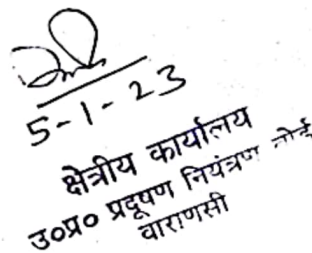 5-1-23
क्षेत्रीय कार्यालय
उ०प्र० प्रदूषण नियंत्रण बोर्ड
वाराणसी